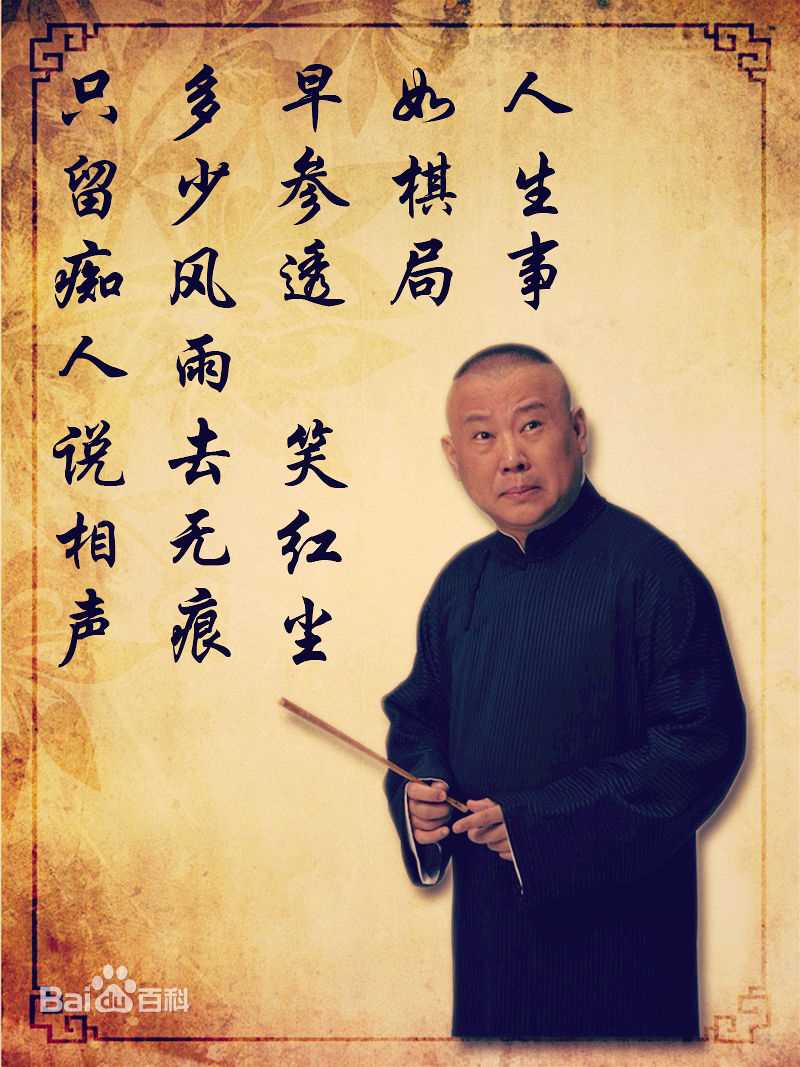 人生事
如棋局
早参透 笑红尘
多少风雨去无痕
只留痴人说相声
Baidu百科